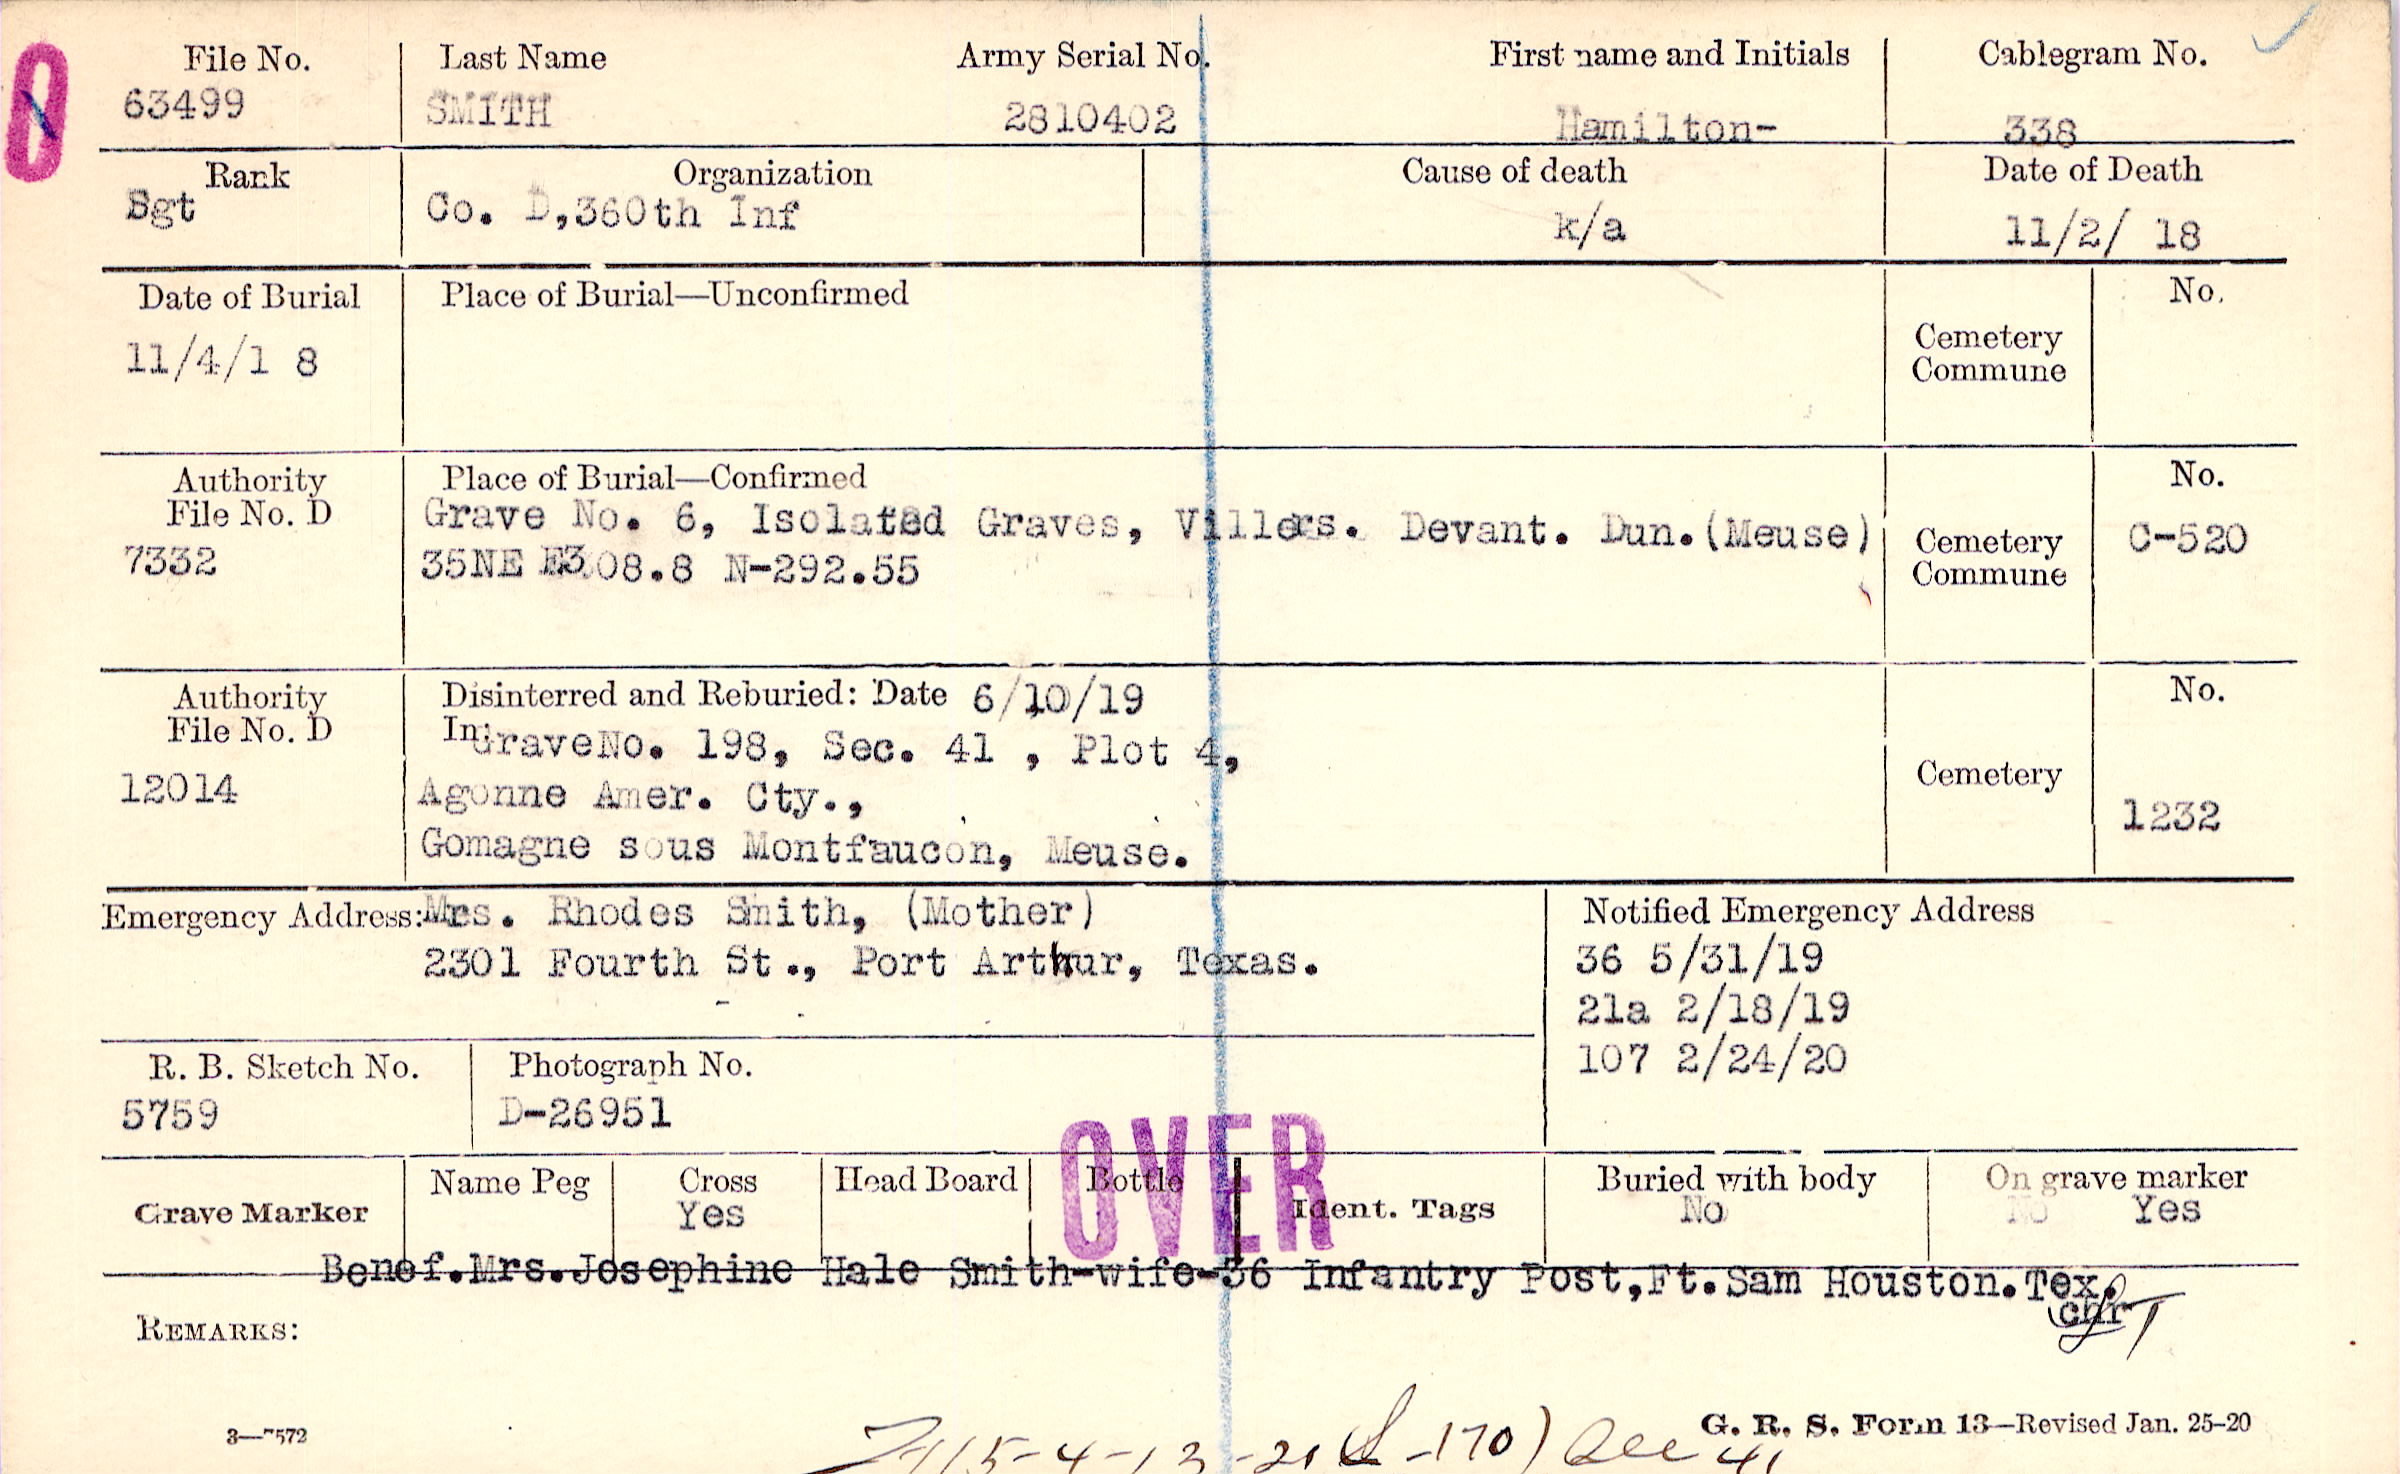 File No. Last Name Army Serial No. First name and Initials Cablegram No.
63499 SMITH 2810402 Hamilton- 338
Rank Organization Cause of death Date of Death
Sgt Co. D,360th Inf k/a 11/2/ 18
Date of Burial Place of Burial—Unconfirmed No.
11/4/1 8 Cemetery
Commune
Authority Place of Burial—Confirmed No.
File No. D Grave No. 6, Isolated Graves, Villers. Devant. Dun.(Meuse) Cemetery C-520
7332 35NE E308.8 N-292.55 Commune
Authority Disinterred and Reburied: Date 6/10/19 No.
File No. D In: GraveNo. 198, Sec. 41 , Plot 4,
12014 Agonne Amer. Cty., Cemetery 1232
Gomagne sous Montfaucon, Meuse.
Emergency Address: Mrs. Rhodes Smith, (Mother) Notified Emergency Address
2301 Fourth St., Port Arthur, Texas. 36 5/31/19
21a 2/18/19
107 2/24/20
R. B. Sketch No. Photograph No.
5759 D-26951
OVER
Grave Marker Name Peg Cross Head Board Bottle Ident. Tags Buried with body On grave marker
Yes No No Yes
Benef.Mrs.Josephine Hale Smith-wife-36 Infantry Post,Ft.Sam Houston.Tex.
chr
REMARKS:
3—7572 G. R. S. Form 13—Revised Jan. 25-20
-170) See 41